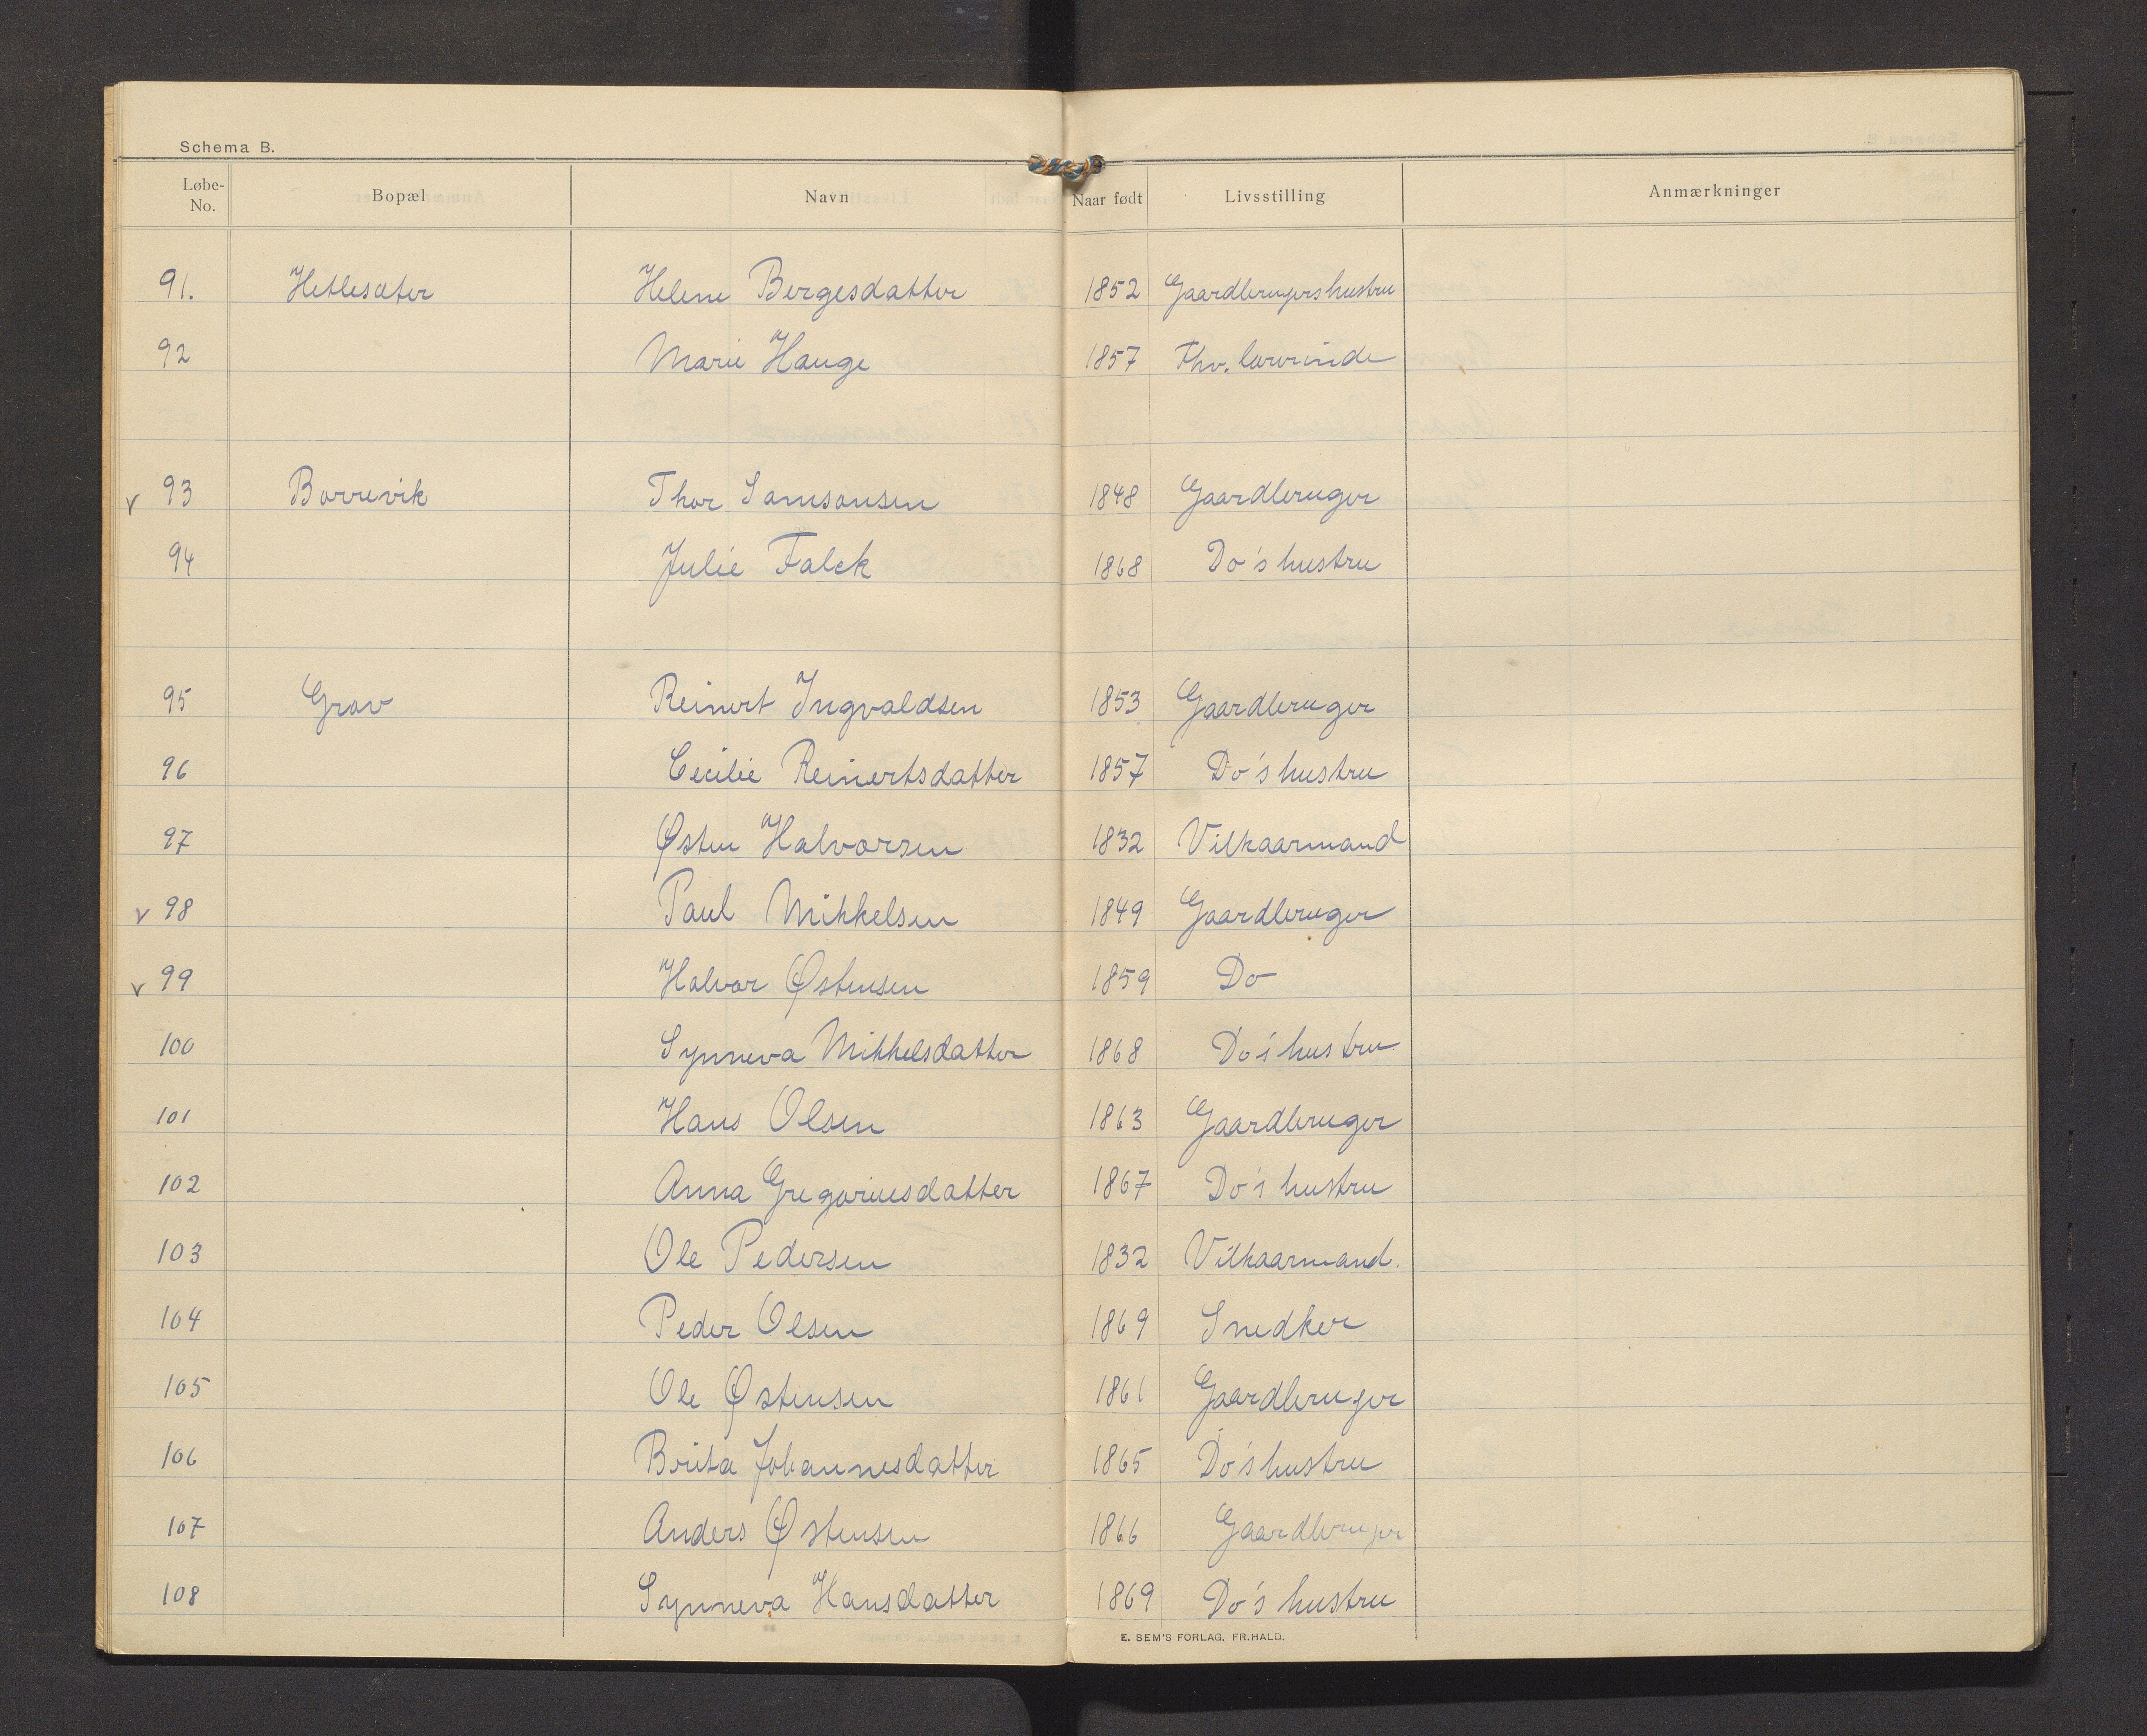 Schema B.
Løbe-No. Bopæl Navn Naar født Livsstilling Anmærkninger
91. Hetlesæter Helene Børgesdatter 1852 Gaardbrugers hustru
92 Marie Hauge 1857 Fhv. lærerinde
v 93 Borrevik Thor Samsonsen 1848 Gaardbruger
94 Julie Falck 1868 Do's hustru
95 Grov Reinert Ingvaldsen 1853 Gaardbruger
96 Cecilie Reinertsdatter 1857 Do's hustru
97 Østen Halvorsen 1832 Vilkaarmand
v 98 Paul Mikkelsen 1849 Gaardbruger
v 99 Halvor Østensen 1859 Do
100 Synneva Mikkelsdatter 1868 Do's hustru
101 Hans Olsen 1863 Gaardbruger
102 Anna Gregoriusdatter 1867 Do's hustru
103 Ole Pedersen 1832 Vilkaarmand.
104 Peder Olsen 1869 Snedker
105 Ole Østensen 1861 Gaardbruger
106 Brita Johannesdatter 1865 Do's hustru
107 Anders Østensen 1866 Gaardbruger
108 Synneva Hansdatter 1869 Do's hustru
E. SEM'S FORLAG, FR.HALD.